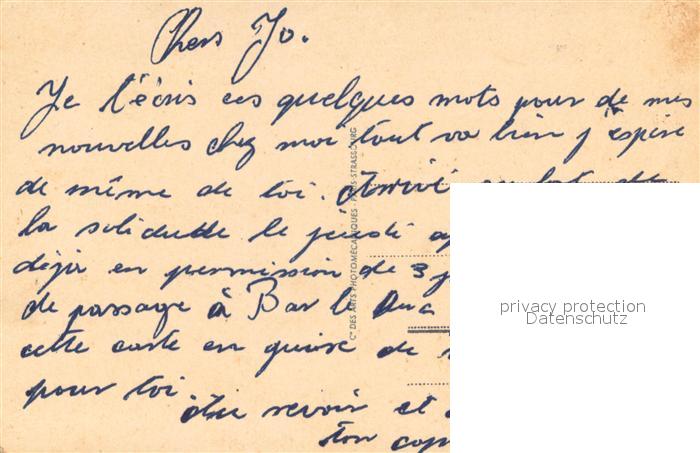 Chers Jo.
Je t'écris ces quelques mots pour de mes
nouvelles chez moi tout va bien j'espère
de même de toi. Arrivé
la solidude le jeudi
déja en permission de 3
de passage à Bar le Duc
cette carte en guise de
pour toi.
Au revoir et
ton cop
Cie DES ARTS PHOTOMÉCANIQUES - PARIS-STRASBOURG
privacy protection
Datenschutz